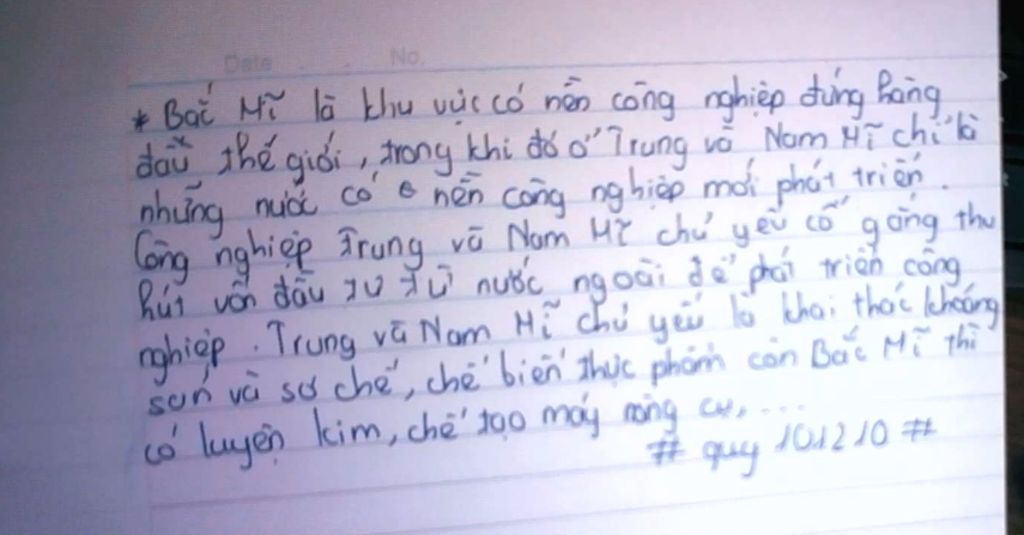 Date No.
* Bắc Mĩ là khu vực có nền công nghiệp đứng hàng
đầu thế giới, trong khi đó ở Trung và Nam Mĩ chỉ là
những nước có nền công nghiệp mới phát triển.
Công nghiệp Trung và Nam Mĩ chủ yếu cố gắng thu
hút vốn đầu tư từ nước ngoài để phát triển công
nghiệp. Trung và Nam Mĩ chủ yếu là khai thác khoáng
sản và sơ chế, chế biến thực phẩm còn Bắc Mĩ thì
có luyện kim, chế tạo máy nông cụ,...
# quy 101210 #